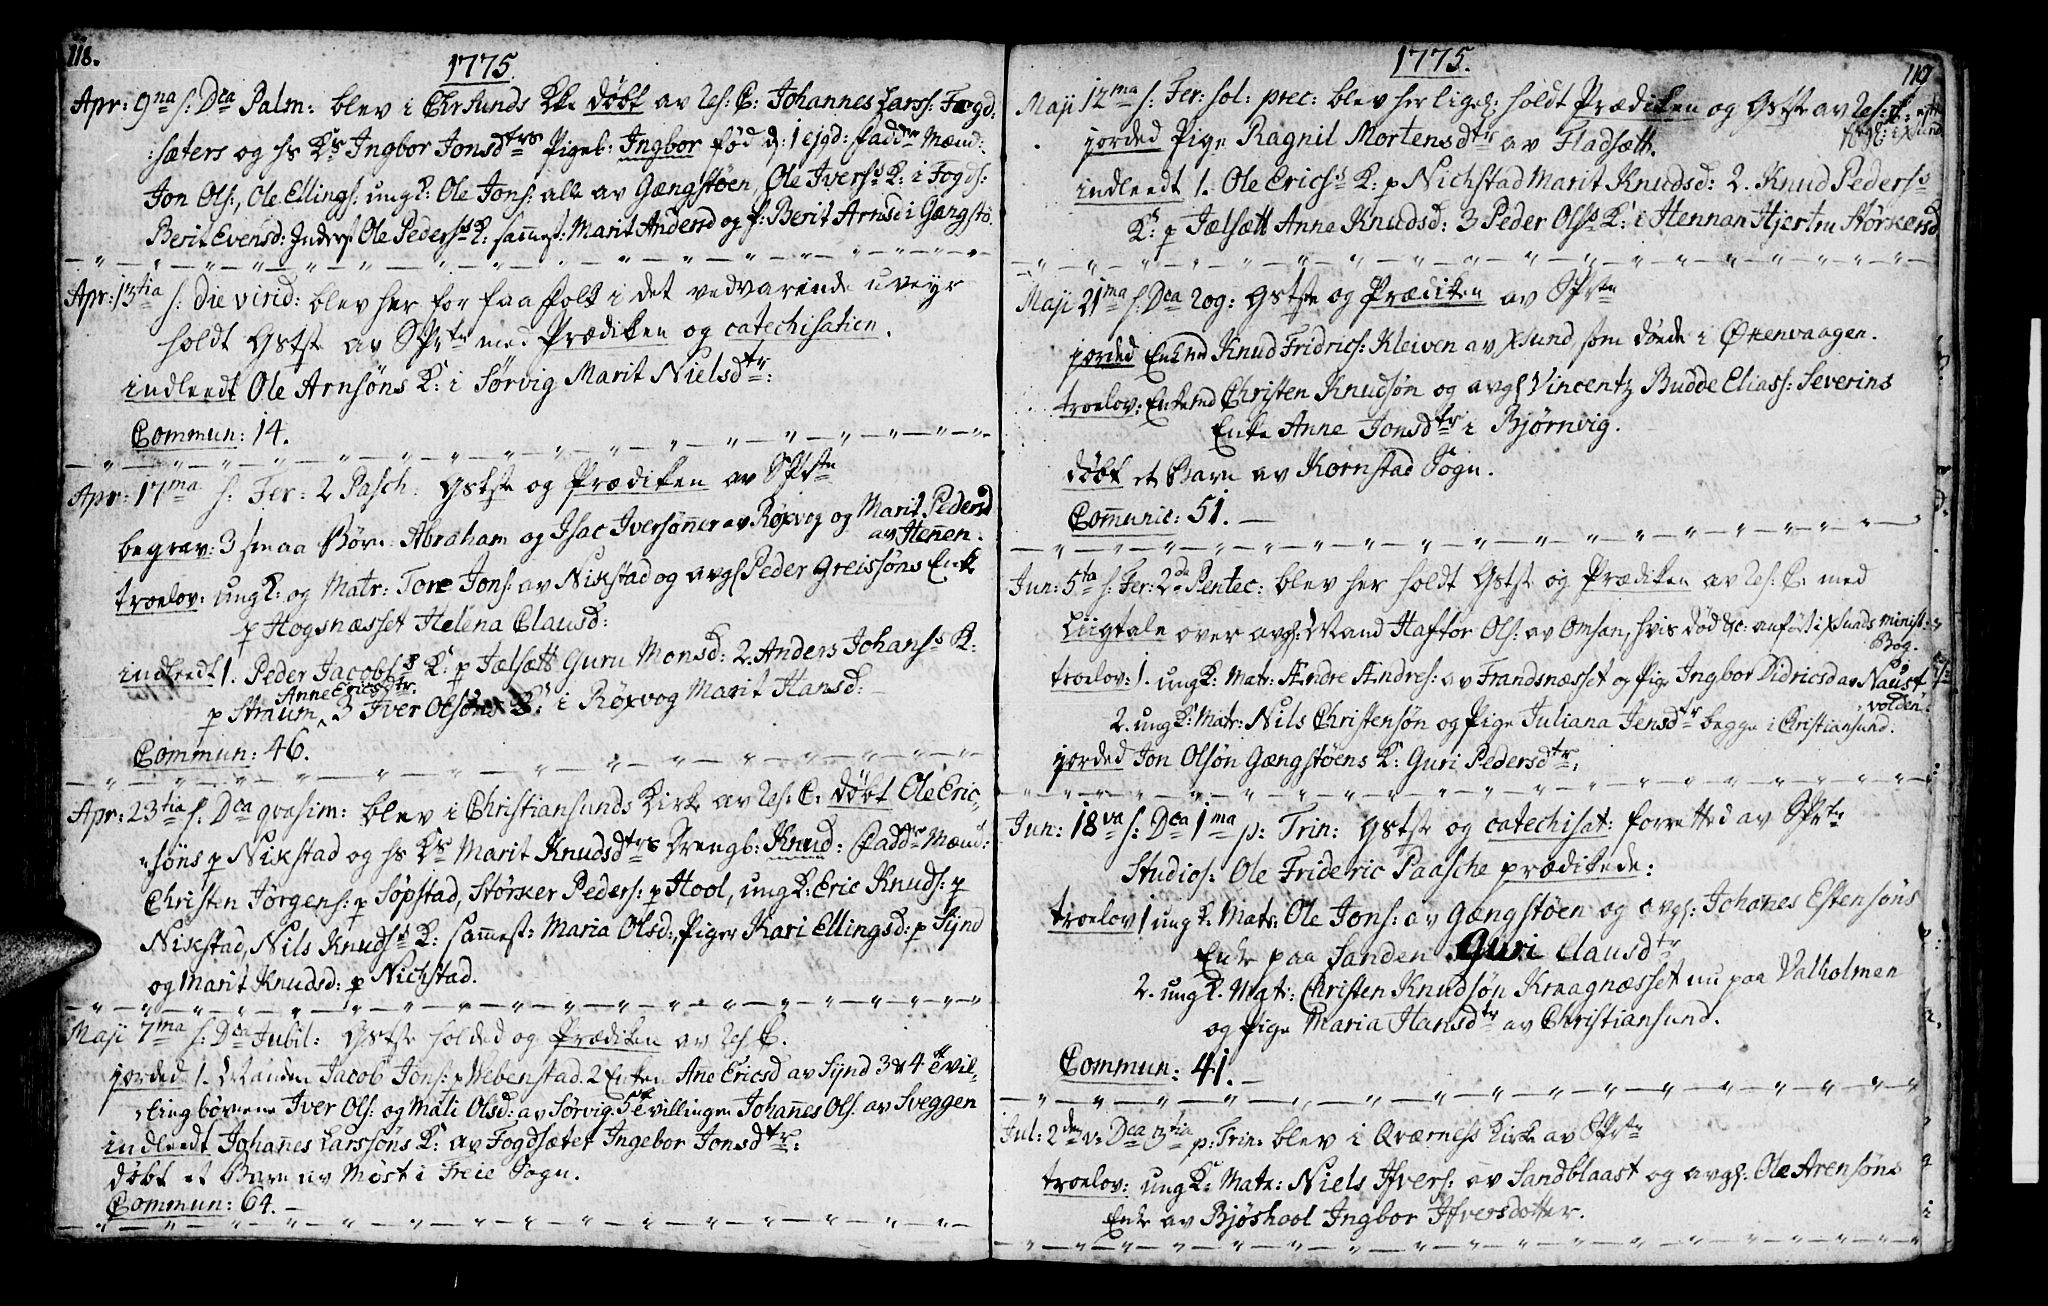 118.
1775.
Apr: 9na s: Dca Palm: blev i Chrsunds Kke døbt av Res: C: Johannes Larss: Fogd:
:sæters og hs Ks Ingbor Jonsdtrs Pigeb: Ingbor fød d: 1 ejgd: Faddre Mænd:
Jon Ols:, Ole Ellings: ungK: Ole Jons: alle av Gængstøen, Ole Iverss K: i Fogds:
Berit Evensd: Inders Ole Pederss K: sammest: Marit Andersd og p: Berit Arnsd i Gængstø.
Apr: 13tia s: Die virid: blev her for faa folk i det vedvarende uveyr
holdt Gstste av SPrtn med Prædiken og catechisation.
indleedt Ole Arnsøns K: i Sørvig Marit Nielsdtr:
Commun: 14.
Apr: 17ma s: Fer: 2 Pasch: Gstste og Prædiken av SPrtn
begrav: 3 smaa Børn: Abraham og Isac Iversønner av Røxvog og Marit Pedersd
av Hennen.
troelov: ungK: og Matr: Tore Jons: av Nikstad og avgs Peder Greissøns Enke
p Hogsnæsset Helena Clausd:
indleedt 1. Peder Jacobss K: p Jælsætt Guru Monsd: 2. Anders Johanss K:
Anne Ericsdtr.
p Straum, 3 Iver Olsøns K: i Røxvog Marit Hansd:
Commun: 46.
Apr: 23tia s: Dca qvasim: blev i Christiansunds Kirke av Res: C. døbt Ole Eric:
:søns p Nikstad og hs Ks Marit Knudsdtrs Drengb: Knud: Faddre Mænd:
Christen Jørgens: p Sopstad, Størker Peders: p Hool, ungK: Eric Knuds: p
Nikstad, Nils Knudss K: sammest: Maria Olsd:, Piger Kari Ellingsd: p Synd
og Marit Knudsd: p Nichstad.
Maji 7ma s: Dca Jubil: Gstste holded og Prædiken av Res C.
jorded 1. Manden Jacob Jons: p Webenstad. 2 Enken Ane Ericsd av Synd 3 & 4 tvil-
lingbørnene Iver Ols: og Mali Olsd: av Sørvig. 5 tvillingen Johannes Ols: av Sveggen
indleedt Johannes Larssøns K: av Fogdsæter Ingebor Jonsdtr:
døbt et Barn av Møst i Freie Sogn.
Commun: 64.
1775.
119
Maji 12ma s: Fer: sol: prec: blev her liges: holdt Prædiken og Gstste av Res: C:
jorded Pige Ragnil Mortensdtr av Fladsætt.
indleedt 1. Ole Ericss K: p Nichstad Marit Knudsd: 2. Knud Pederss
K: p Jælsætt Anne Knudsd: 3 Peder Olss K: i Hennan Hjestru Størkersd
Maji 21ma s: Dca Rog: Gstste og Prædiken av SPrtn
jorded Enkmd Knud Fridrics: Kleiven av Xsund som døede i Ørenvaagen.
troelov: Enkemd Christen Knudsøn og avgs Vincentz Budde Eliass: Severins
Enke Anne Jonsdtr i Bjørnvig.
døbt et Barn av Kornstad Sogn.
Communic: 51.
Jun: 5ta s: Fer: 2da Pentec: blev her holdt Gstste og Prædiken av Res: C. med
Liigtale over avgs: Mand Haftor Ols: av Omsan, hvis død &c: anført i Xsunds minist:
Bog.
troelov: 1. ungK: Matr: Ændre Ændres: av Frandsnæsset og Pige Ingbor Didricsd av Naust
volden.
2. ungK: Matr: Nils Christensøn og Pige Juliana Jensdtr begge i Christiansund.
jorded Jon Olsøn Gængstøens K: Guri Pedersdtr.
Jun: 18va s: Dca 1ma p: Trin: Gstste og catechisat: forretted av SPrtn
Studios: Ole Frideric Paasche prædikede:
troelov 1 ungK. Matr: Ole Jons: av Gængstøen og avgs: Johannes Estensøns
Enke paa Sanden Guri Clausdtr
2. ungK. Mgtr: Christen Knudsøn Kraagnæsset nu paa Valholmen
og Pige Maria Hansdtr av Christiansund.
Commun: 41.
Jul: 2den v: Dca 3tia p: Trin: blev i Qværness Kirke av SPrtn
troelov: ungK: Matr: Niels Ifvers: av Sandblaast og avgs: Ole Arensøns
Enke av Bjøshool Ingbor Ifversdotter.